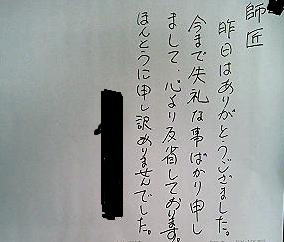 師匠
昨日はありがとうございました。
今まで失礼な事ばかり申し
まして、心より反省しております。
ほんとうに申し訳ありませんでした。